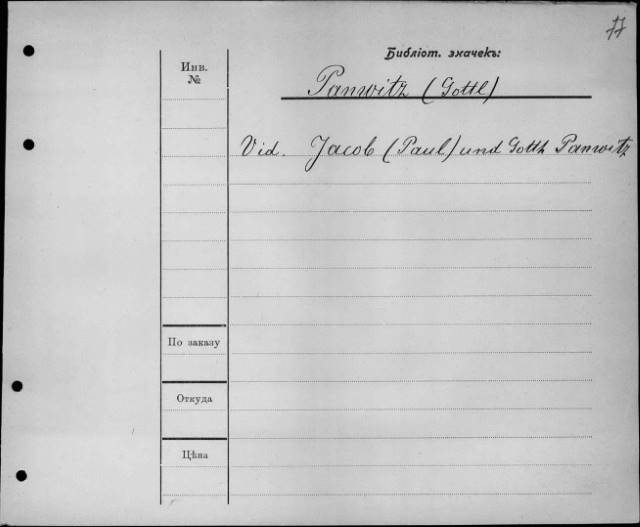 Библіот. значекъ:
Инв.
№
Panwitz (Gottl)
Vid. Jacob (Paul) und Gotth Panwitz
По заказу
Откуда
Цѣна